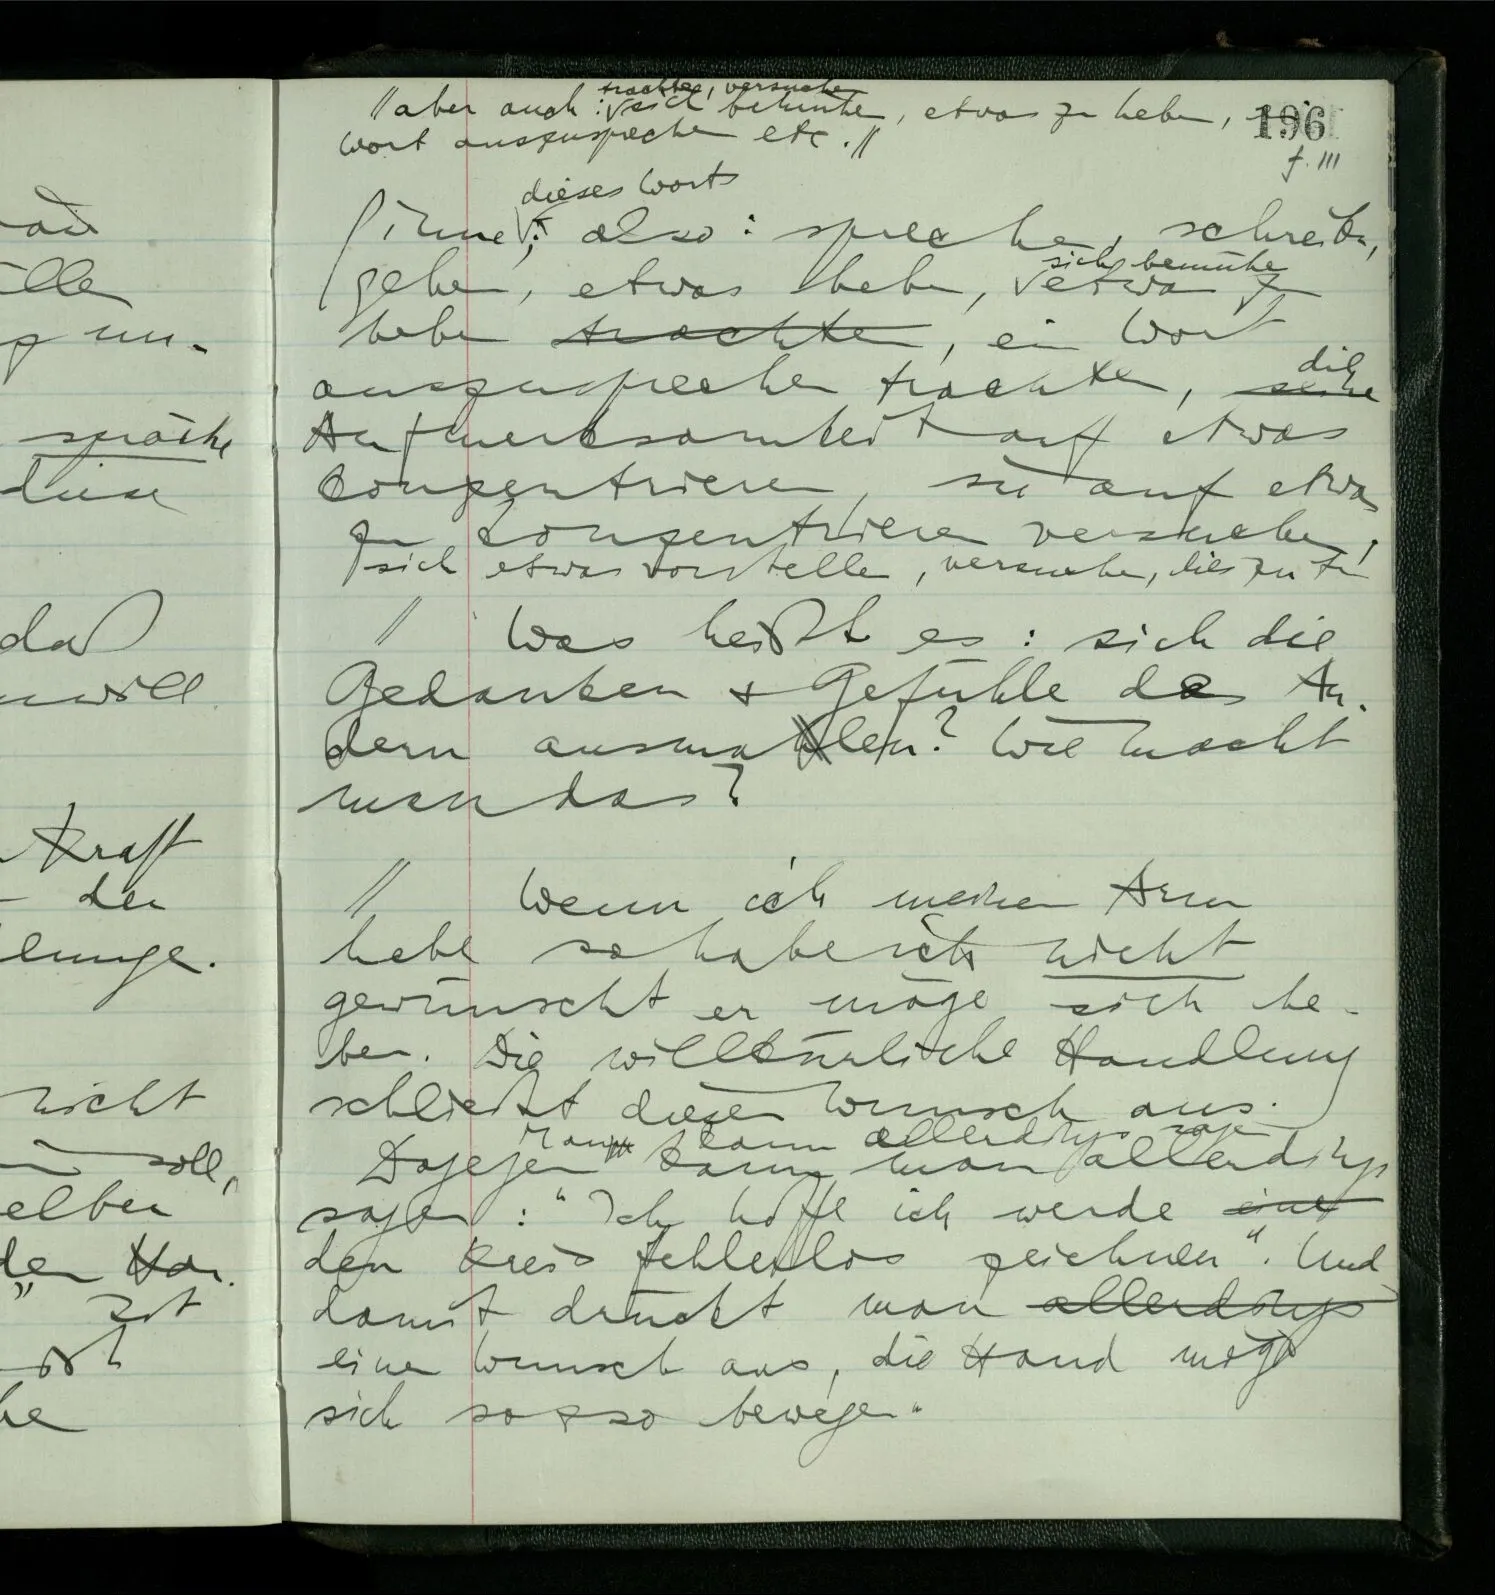 ad
ille
un-
spräche
diese
daß
will
Kraft
- den
lunge.
nicht
soll,
elben
den Han-
Zit
ist
he
trachten, versuchen
// aber auch: sich bemühen, etwas zu heben, ein 196
Wort auszusprechen etc. //
f. III
dieses Worts
Sinne; also: sprechen, schreiben,
sich bemühen
gehen, etwas heben, etwas zu
heben trachten, ein Wort
auszusprechen trachten, seine die
Aufmerksamkeit auf etwas
konzentrieren, sie auf etwas
zu konzentrieren versuchen,
sich etwas vorstellen, versuchen, dies zu tun
// Was heißt es: sich die
Gedanken & Gefühle des An-
dern ausmalen? Wie macht
man das?
// Wenn ich meinen Arm
hebe so habe ich nicht
gewünscht er möge sich he-
ben. Die willkürliche Handlung
schließt diesen Wunsch aus.
Man kann allerdings sagen
Dagegen kann man allerdings
sagen: "Ich hoffe ich werde eine
den Kreis fehlerlos zeichnen". Und
damit drückt man allerdings
einen Wunsch aus, die Hand möge
sich so & so bewegen.